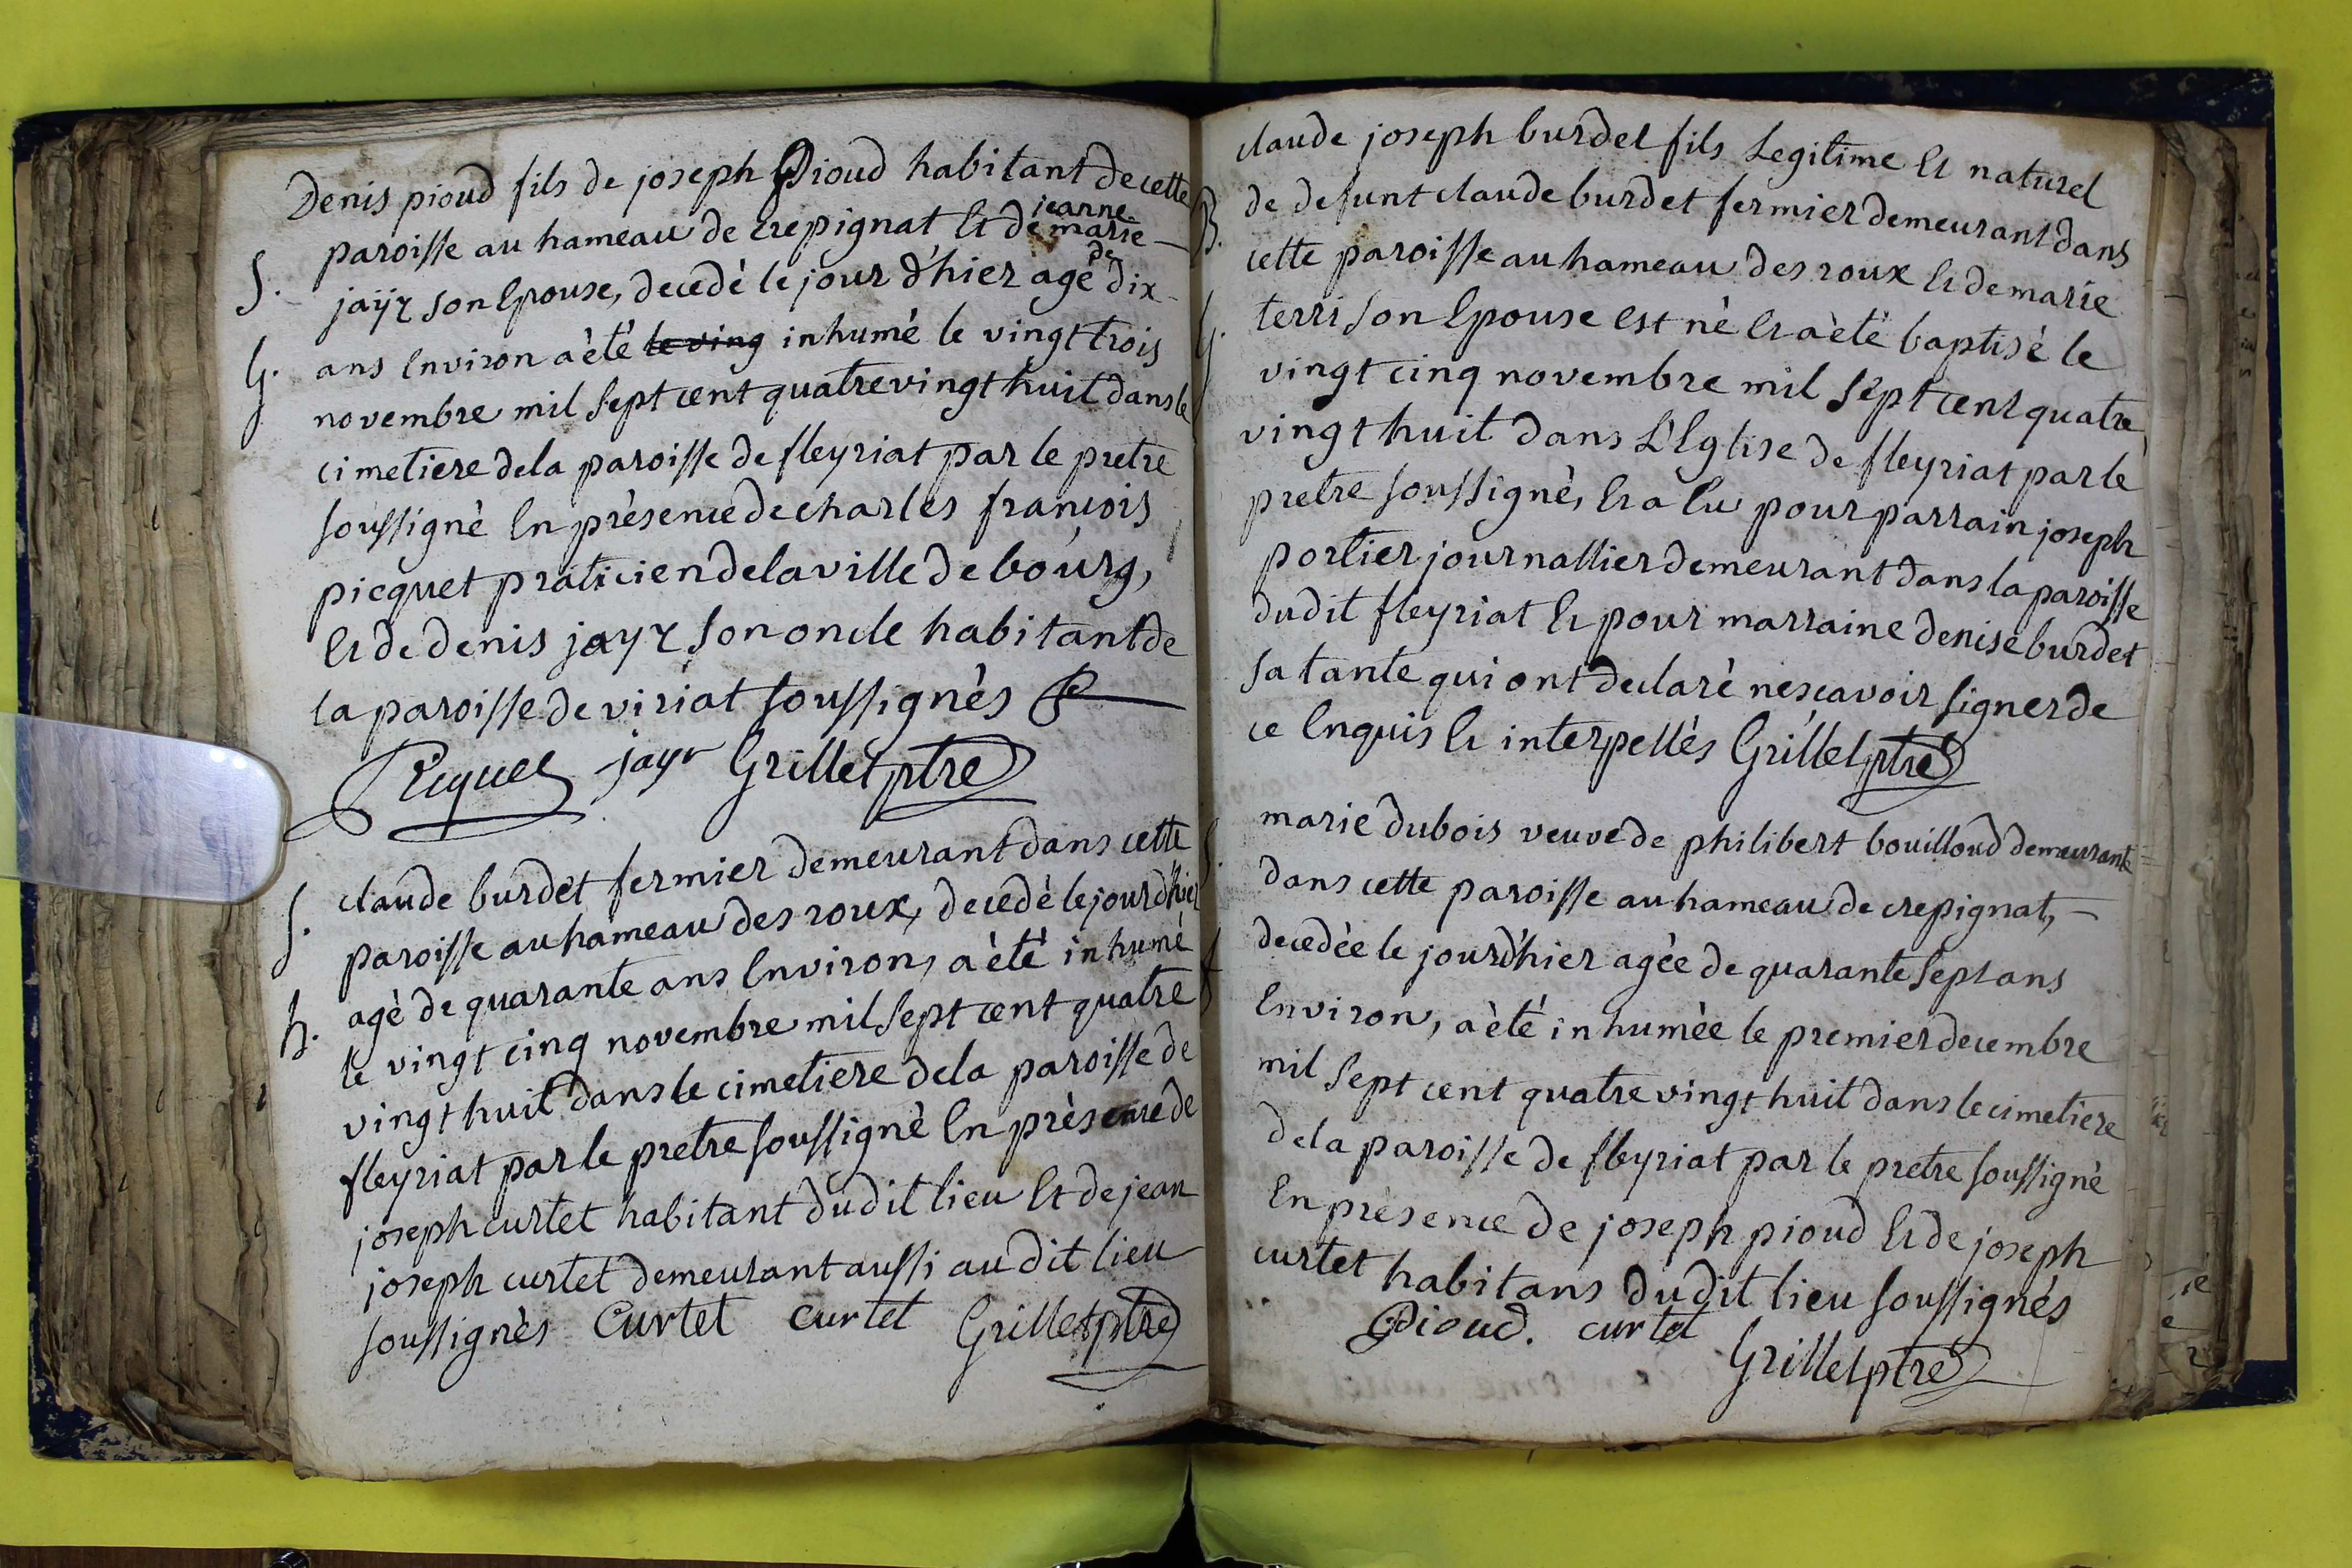 Denis pioud fils de joseph Pioud habitant de cette
paroisse au hameau de crepignat Et de jeanne marie
S. jaÿr son Epouse, decedè le jour d'hier agé de dix
G. ans Environ a èté le ving inhumè le vingt trois
novembre mil sept cent quatre vingt huit dans le
cimetiere de la paroisse de fleyriat par le pretre
soussignè En présence de charles françois
picquet praticien de la ville de bourg,
Et de denis jayr son oncle habitant de
la paroisse de viriat soussignès
Picquet jayr Grillet ptre
claude burdet fermier demeurant dans cette
S. paroisse au hameau des roux, decedè le jour d'hier
agè de quarante ans Environ, a èté inhumé
h. le vingt cinq novembre mil sept cent quatre
vingt huit dans le cimetiere de la paroisse de
fleyriat par le pretre soussignè En prèsence de
joseph curtet habitant dudit lieu Et de jean
joseph curtet demeurant aussi audit lieu
soussignès Curtet curtet Grillet ptre
claude joseph burdet fils Legitime Et naturel
B. de defunt claude burdet fermier demeurant dans
cette paroisse au hameau des roux Et de marie
G. terri son Epouse est nè Et a èté baptisè le
vingt cinq novembre mil sept cent quatre
vingt huit dans L'Eglise de fleyriat par le
pretre soussignè, Et a Eu pour parrain joseph
portier journallier demeurant dans la paroisse
dudit fleyriat Et pour marraine denise burdet
sa tante qui ont declarè ne scavoir signer de
ce Enquis Et interpellès Grillet ptre
marie dubois veuve de philibert bouilloud demeurante
S. dans cette paroisse au hameau de crepignat,
decedèe le jour d'hier agèe de quarante sept ans
Environ, a èté inhumèe le premier decembre
mil sept cent quatre vingt huit dans le cimetiere
de la paroisse de fleyriat par le pretre soussignè
En prèsence de joseph pioud Et de joseph
curtet habitans dudit lieu soussignés
Pioud. curtet
Grillet ptre